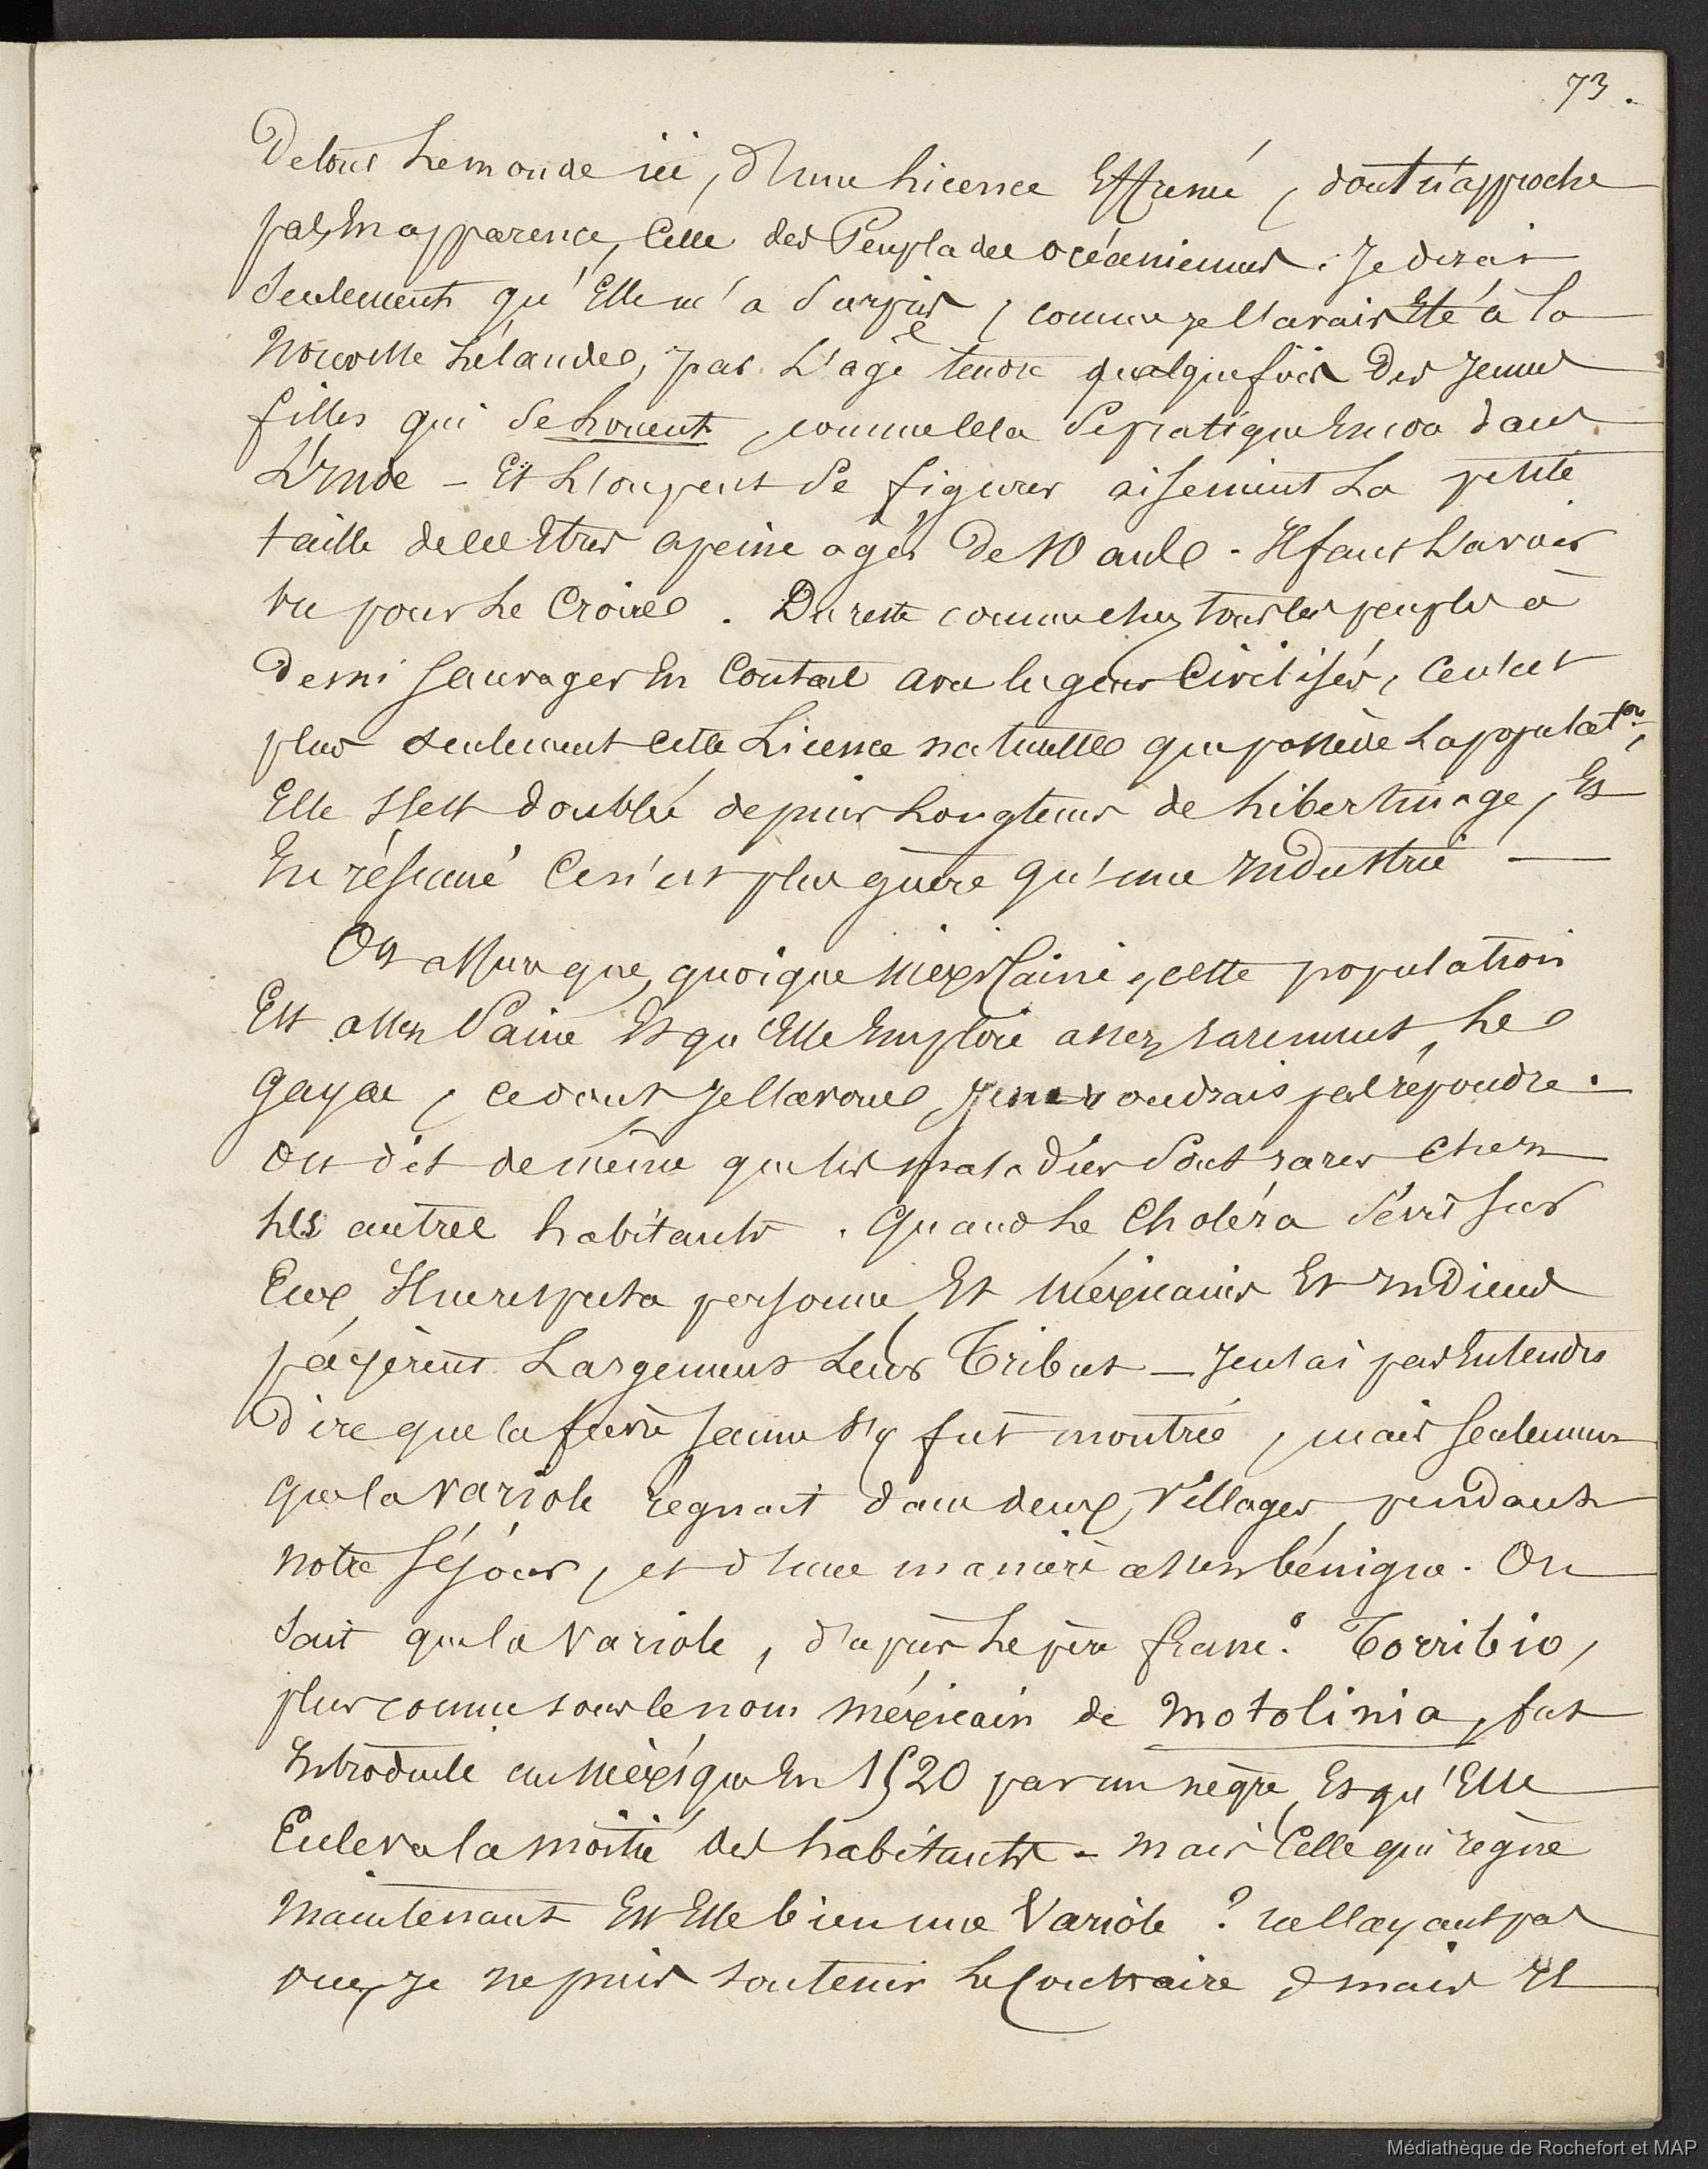 73.
De tout le monde ici, d'une licence Effrenée, dont n'approche
pas, En apparence, Celle des Peuplades océaniennes. Je dirai
Seulement qu'Elle m'a Surpris, comme je l'avais Eté à la
Nouvelle Zélande, par L'age tendre quelquefois Des jeunes
filles qui Se Louent, comme cela Se pratique Encor dans
L'Inde – Et L'on peut Se figurer aisement La petite
taille de ces Etres a peine agés De 10 ans. Il faut L'avoir
Vu pour Le Croire. Du reste comme chez tous les peuples à
Demi Sauvages En Contact avec les gens Civilisés, Ce n'est
plus seulement cette Licence naturelle que possède La populat.on,
Elle s'est doublée depuis Longtems de Libertinage, Et
En résumé Ce n'est plus guère qu'une Industrie —
On assure que, quoique Mexicaine, cette population
Est assez Saine Et qu'Elle Emploie assez rarement Le
Gayac, ce dont je l'avoue, je ne voudrais pas répondre.
On dit de même que les maladies Sont rares Chez
Les autres habitants. Quand Le Choléra Sévit Sur
Eux, Il ne respecta personne, Et Méxicains Et Indiens
payèrent Largement Leur Tribut – Je n'ai pas Entendu
Dire que la fièvre Jaune S'y fut montrée, mais Seulement
que la Variole régnait dans deux Villages pendant
notre Séjour, et d'une manière assez bénigne. On
Sait que la Variole, d'après Le père Franc.o Torribio,
plus connu sous le nom méxicain de Motolinia, fut
Introduite au Méxique En 1520 par un nègre, Et qu'Elle
Enleva la moitié des habitants – Mais Celle qui règne
Maintenant Est Elle bien une Variole ? ne l'ayant pas
vue, Je ne puis Soutenir Le Contraire, mais Il
Médiathèque de Rochefort et MAP